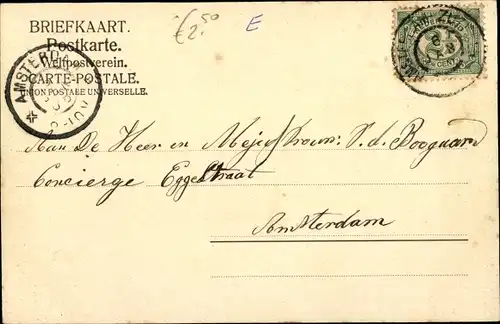 BRIEFKAART.
Postkarte.
Weltpostverein.
CARTE-POSTALE.
UNION POSTALE UNIVERSELLE.
£2.50
E
AMSTERD
Aan De Heer en Mejufvrouw: V. d. Boogaard
Concierge Eggestraat
Amsterdam